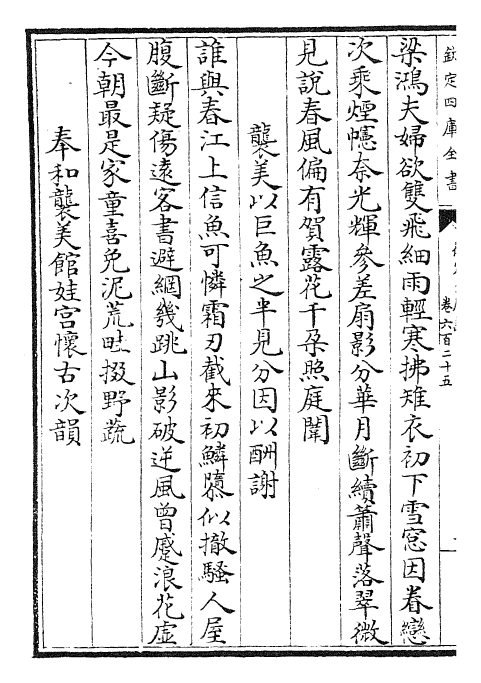 欽定四庫全書
卷六百二十五
梁鴻夫婦欲雙飛細雨輕寒拂雉衣初下雪窓因眷戀
次乘煙幰奈光輝參差扇影分華月斷續簫聲落翠微
見說春風偏有賀露花千朶照庭闈
襲美以巨魚之半見分因以酬謝
誰與春江上信魚可憐霜刃截來初鱗隳似撤騷人屋
腹斷疑傷遠客書避網幾跳山影破逆風曾蹙浪花虛
今朝最是家童喜免泥荒畦掇野蔬
奉和襲美館娃宮懷古次韻